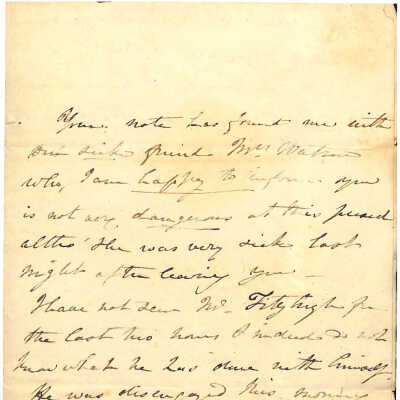 Your note has found me with
our sick friend Mrs Watson
who, I am happy to inform you
is not very dangerous at this period
altho' she was very sick last
night after leaving you —
I have not seen Mr. Fitzhugh for
the last two hours & indeed do not
know what he has done with himself.
He was disengaged this morning